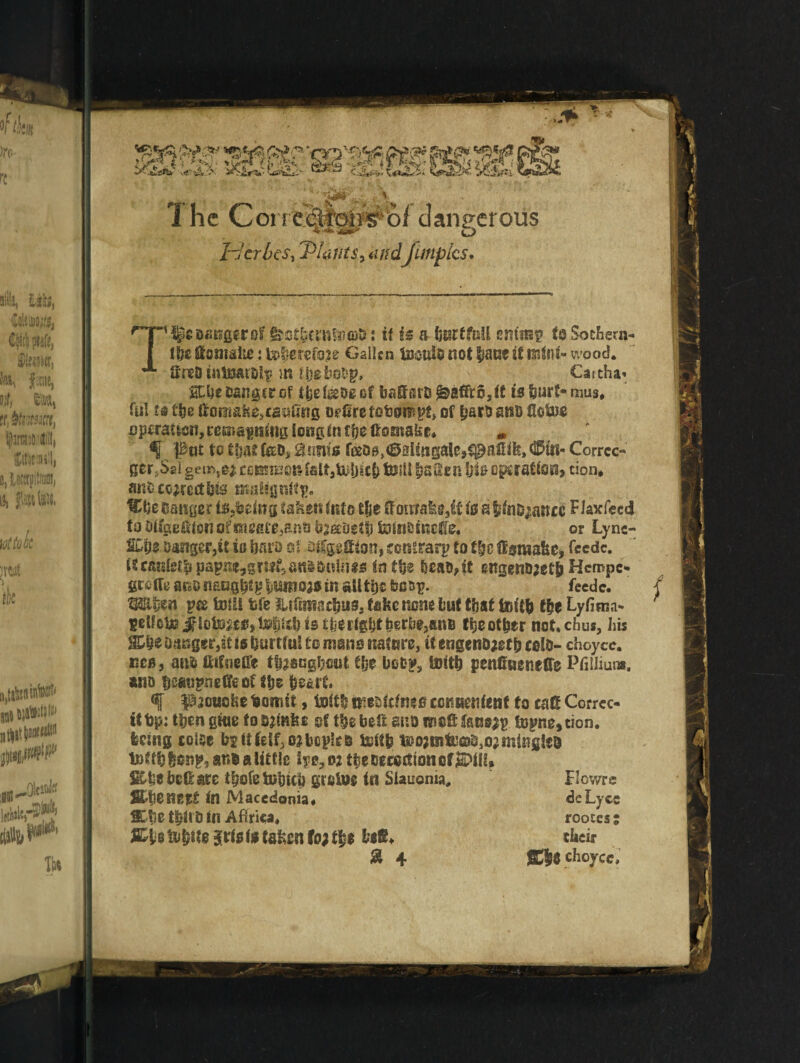 The Corrections of dangerous
Herbes, Plants, and simples.
THe danger of Sothernwood: it is a hurtfull enimy to Sothern-
the stomake: wherefore Gallen would not haue it mini- wood.
stred inwardly in the body. Cartha-
The danger of the seede of bastard Saffrō, it is hurt- mus,
ful to the stomake, causing desire to vomyt, of hard and slowe
operation, remayning long in the stomake.
¶ Put to that seed, Annis seedes, Galingale, Mastik, Gin- Correc-
ger, Sal gem, or common salt, which will hasten his operation, tion,
and correct his malignity.
The danger is, being taken into the stomake, it is a hindrance Flaxseed
to digestion of meate, and breedeth windinesse. or Lyne-
The danger, it is hard of digestion, contrary to the stomake, seede.
it causeth payne, grief, and dulnes in the head, it engendreth Hempe-
grosse and naughty humors in all the body. seede.
When yee will vse Lisimachus, take none but that with the Lysima-
yellow Flowres, which is the right herbe, and the other not. chus, his
The danger, it is hurtful to mans nature, it engendreth cold- choyce.
nes, and stifnesse throughout the body, with pensiuenesse Psillium.
and heauynesse of the heart.
¶ Prouoke vomit, with medicines conuenient to cast Correc-
it vp: then giue to drinke of the best and most sauory wyne, tion.
being colde by it self, or boyled with wormwood, or mingled
with hony, and a little lye, or the decoction of Dill.
The best are those which grow in Slauonia, Flowre
The next in Macedonia. de Lyce
The third in Africa, rootes:
The white Iris is taken for the best. their
A 4 The choyce,
of them
The